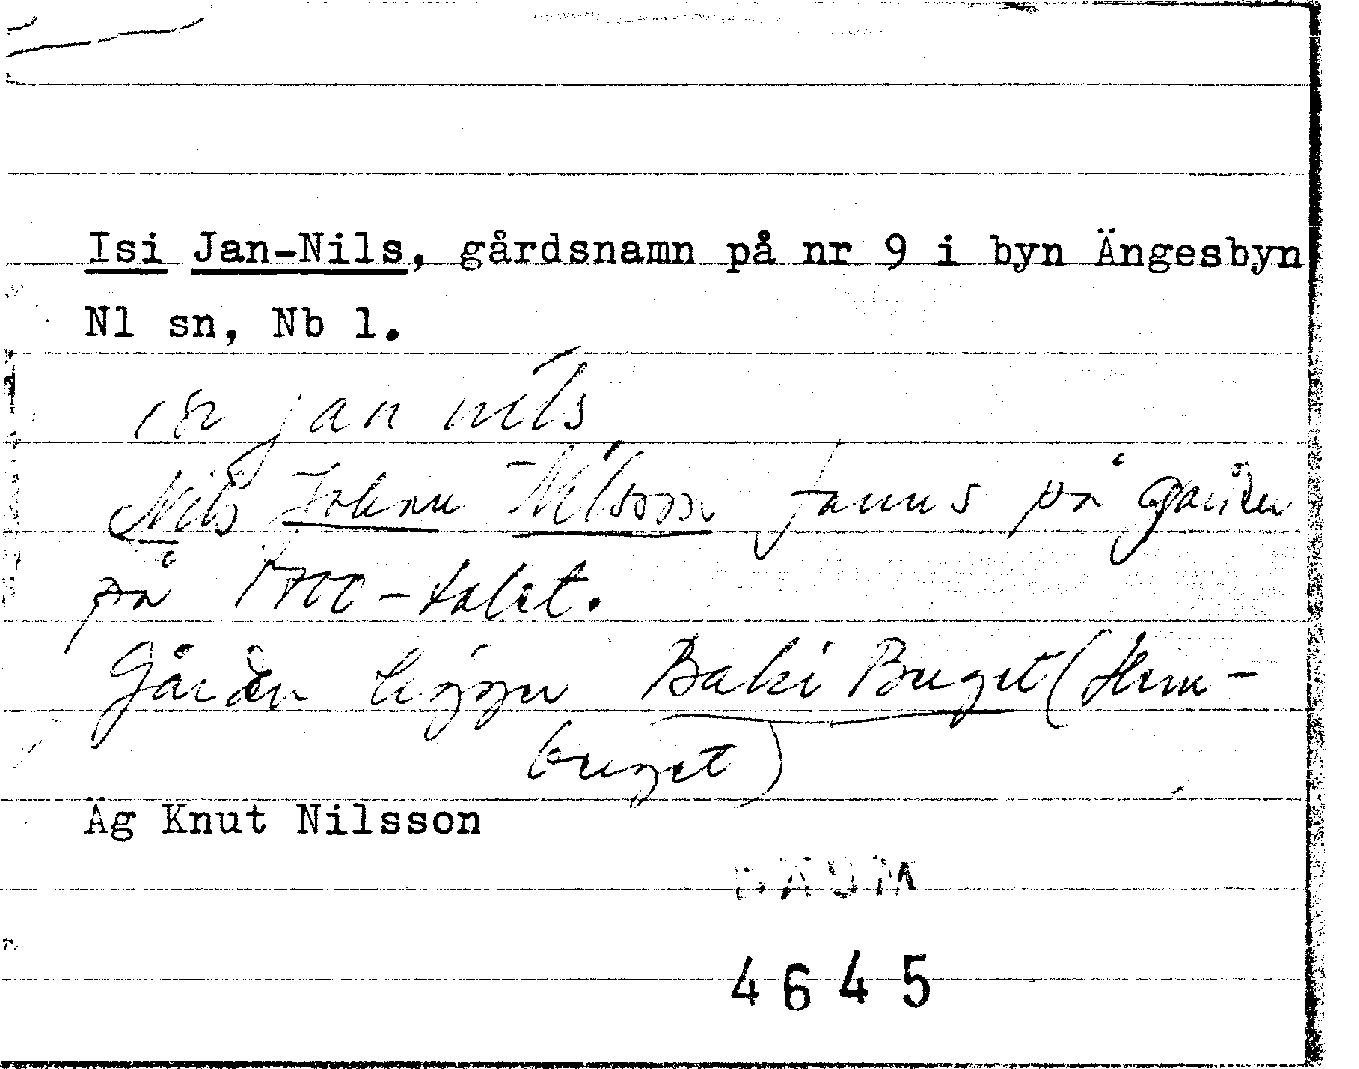 Isi Jan-Nils, gårdsnamn på nr 9 i byn Ängesbyn
Nl sn, Nb l.
jan nils
Nils Johan Nilsson fanns på gården
på 1700-talet.
Gården ligger Baki Buget (Hem-
buget)
Äg Knut Nilsson
DAUM
4645